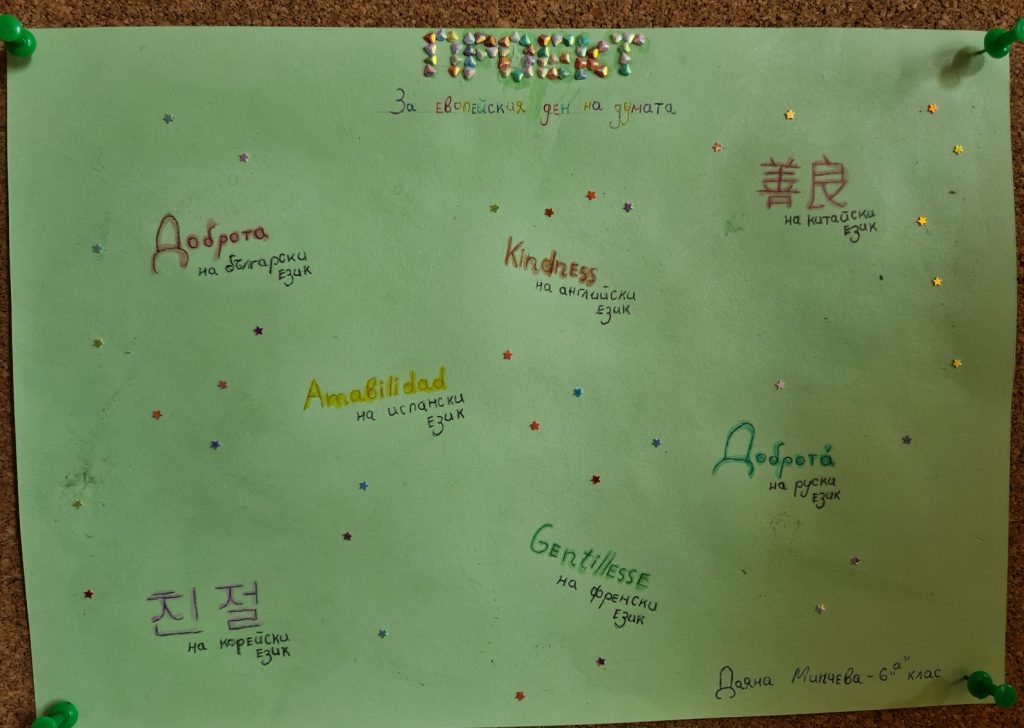 ПРОЕКТ
За европейския ден на думата
善良
на китайски
език
Доброта
на български
език
Kindness
на английски
език
Amabilidad
на испански
език
Доброта́
на руски
език
Gentillesse
на френски
език
친절
на корейски
език
Даяна Мипчева - 6 "а" клас